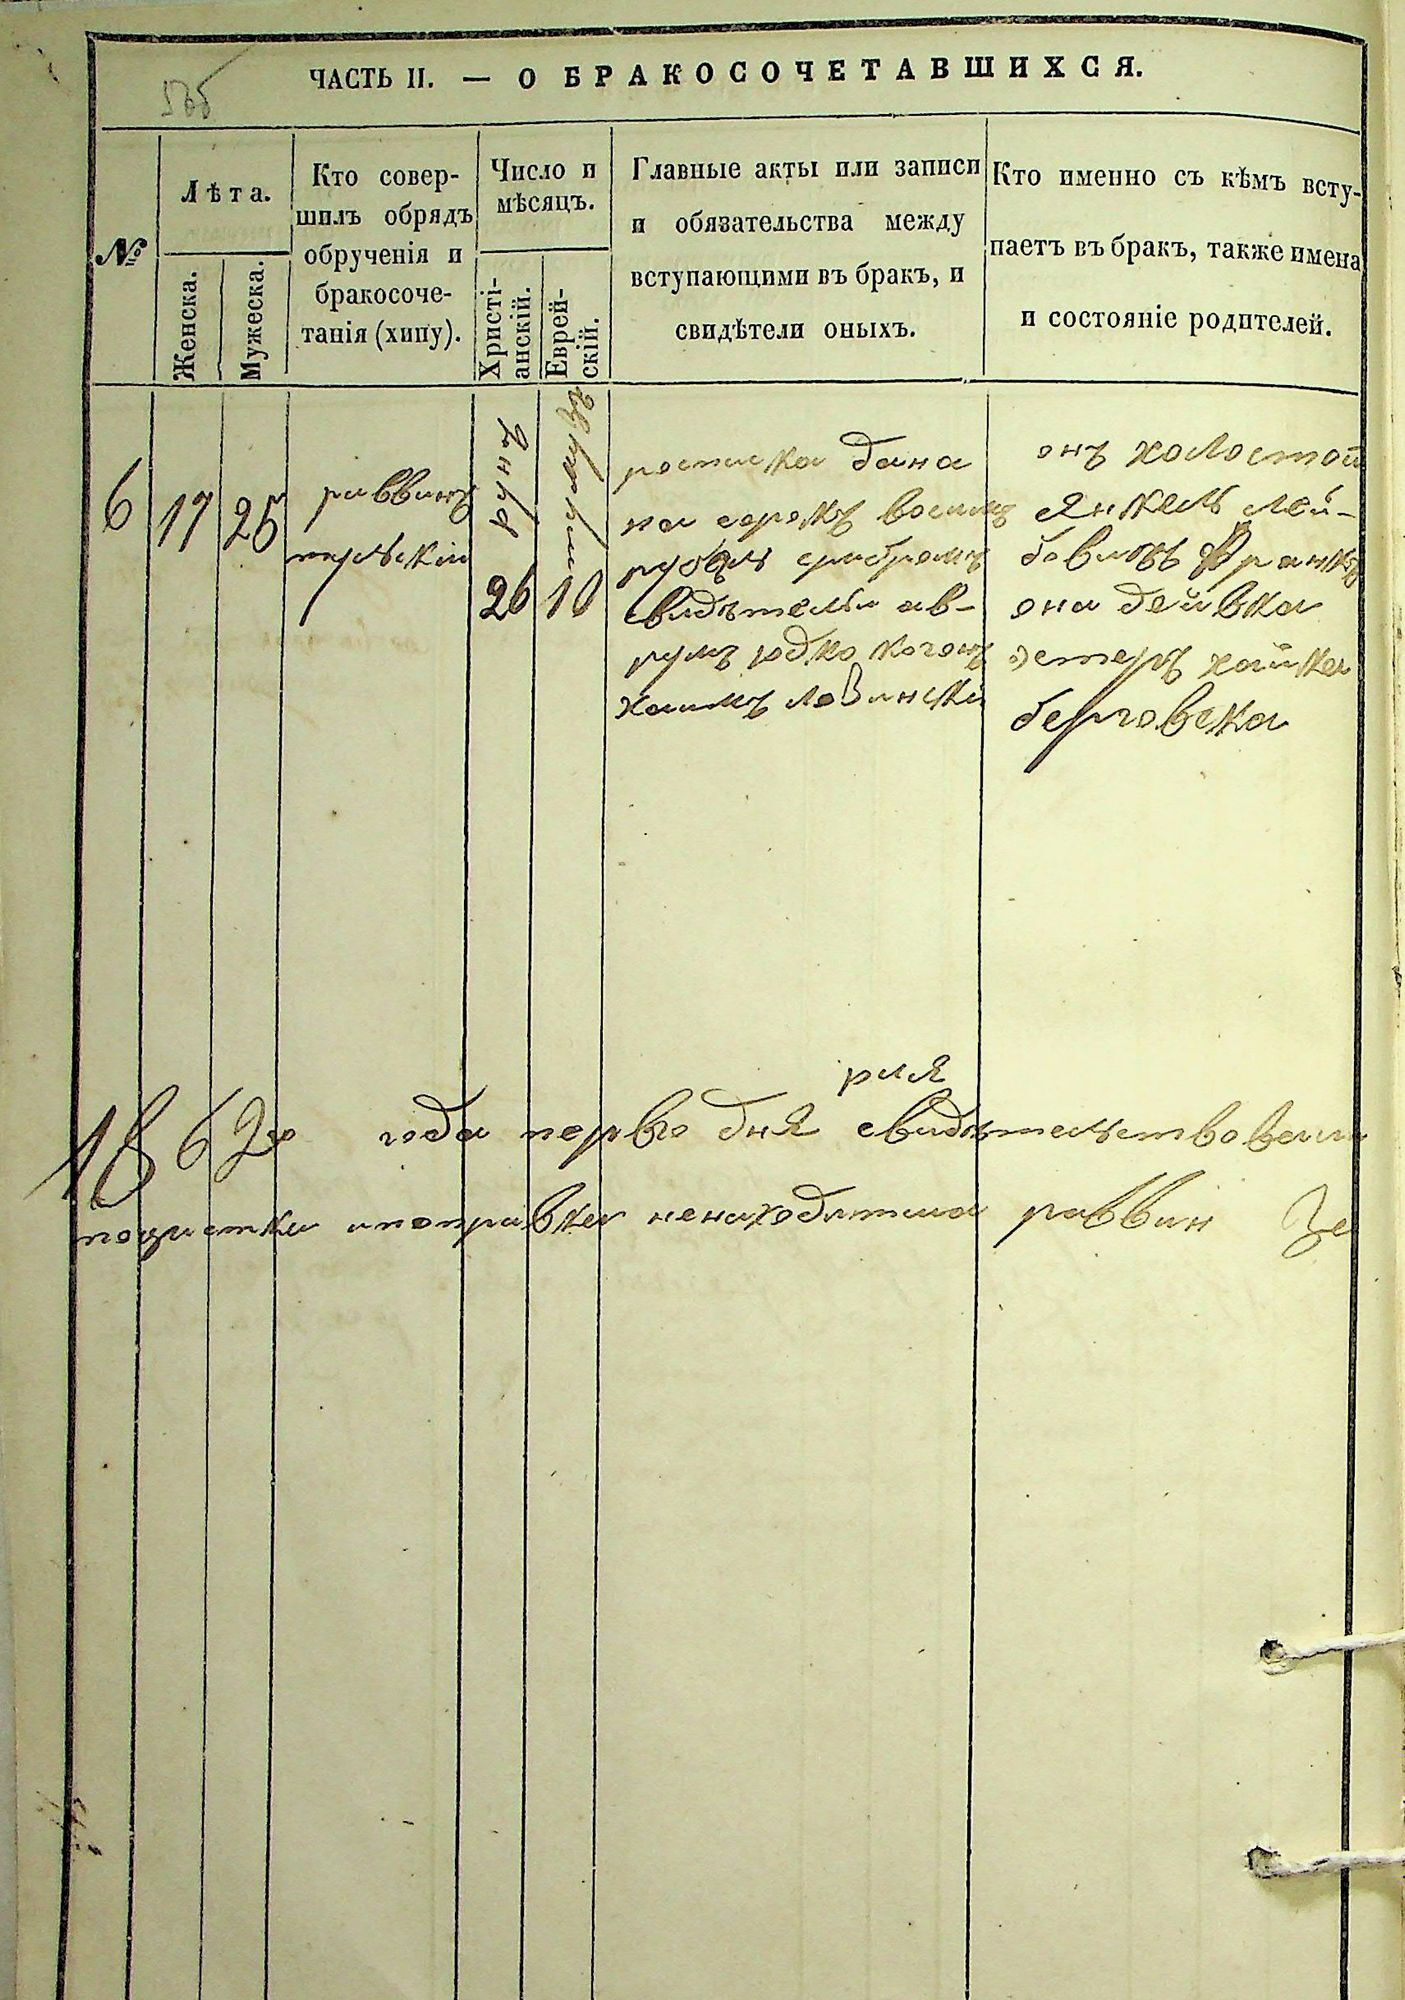 ЧАСТЬ II. — О БРАКОСОЧЕТАВШИХСЯ.
№
Лѣта.
Женска.
Мужеска.
Кто совер-
шилъ обрядъ
обрученія и
бракосоче-
танія (хипу).
Число и
мѣсяцъ.
Христі-
анскій.
Еврей-
скій.
Главные акты или записи
и обязательства между
вступающими въ бракъ, и
свидѣтели оныхъ.
Кто именно съ кѣмъ всту-
паетъ въ бракъ, также имена
и состояніе родителей.
6
17
25
раввинъ
26
10
росписка дана
на сорокъ восимъ
рубля сребромъ
свидѣтели ав-
румъ юдко коганъ
хаимъ левински
онъ холостой
Янкель лей-
бовичъ Франкъ
она дейвка
эстеръ хайкел
берговска
рля
1862го года перваго дня свидѣтельствовалъ
почистки ипоправки ненаходится раввин